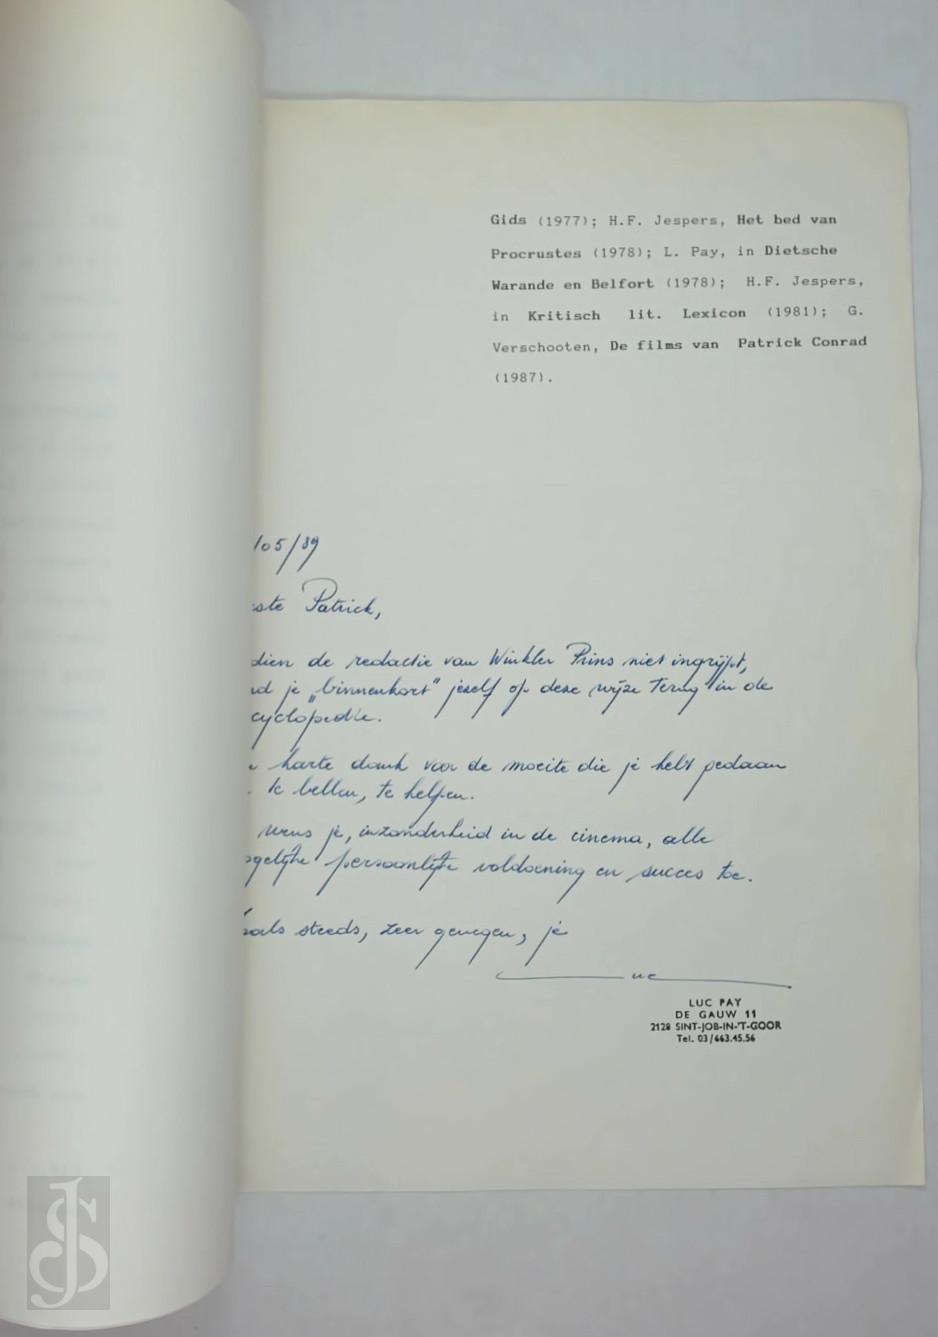 Gids (1977); H.F. Jespers, Het bed van
Procrustes (1978); L. Pay, in Dietsche
Warande en Belfort (1978); H.F. Jespers,
in Kritisch lit. Lexicon (1981); G.
Verschooten, De films van Patrick Conrad
(1987).
/05/89
ste Patrick,
dien de redactie van Winkler Prins niet ingrijpt,
nd je "binnenkort" jezelf op deze wijze terug in de
cyclopedie.
harte dank voor de moeite die je hebt gedaan
te bellen, te helpen.
wens je, inzonderheid in de cinema, alle
gelijke persoonlijke voldoening en succes toe.
Zoals steeds, zeer genegen, je
Luc
LUC PAY
DE GAUW 11
2128 SINT-JOB-IN-'T-GOOR
Tel. 03/663.45.56